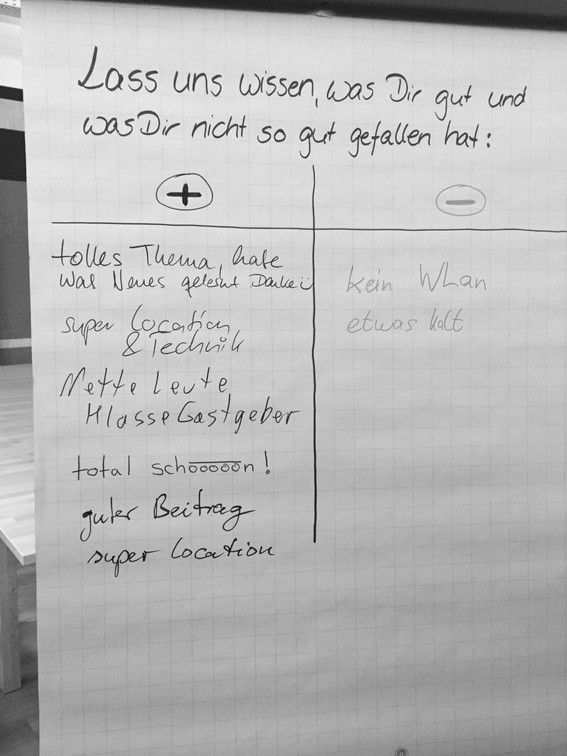 Lass uns wissen, was Dir gut und
was Dir nicht so gut gefallen hat:
+
−
tolles Thema, habe
was Neues gelernt Danke ü
super Location,
& Technik
Nette Leute
Klasse Gastgeber
total schöööööön!
guter Beitrag
super Location
kein WLan
etwas kalt